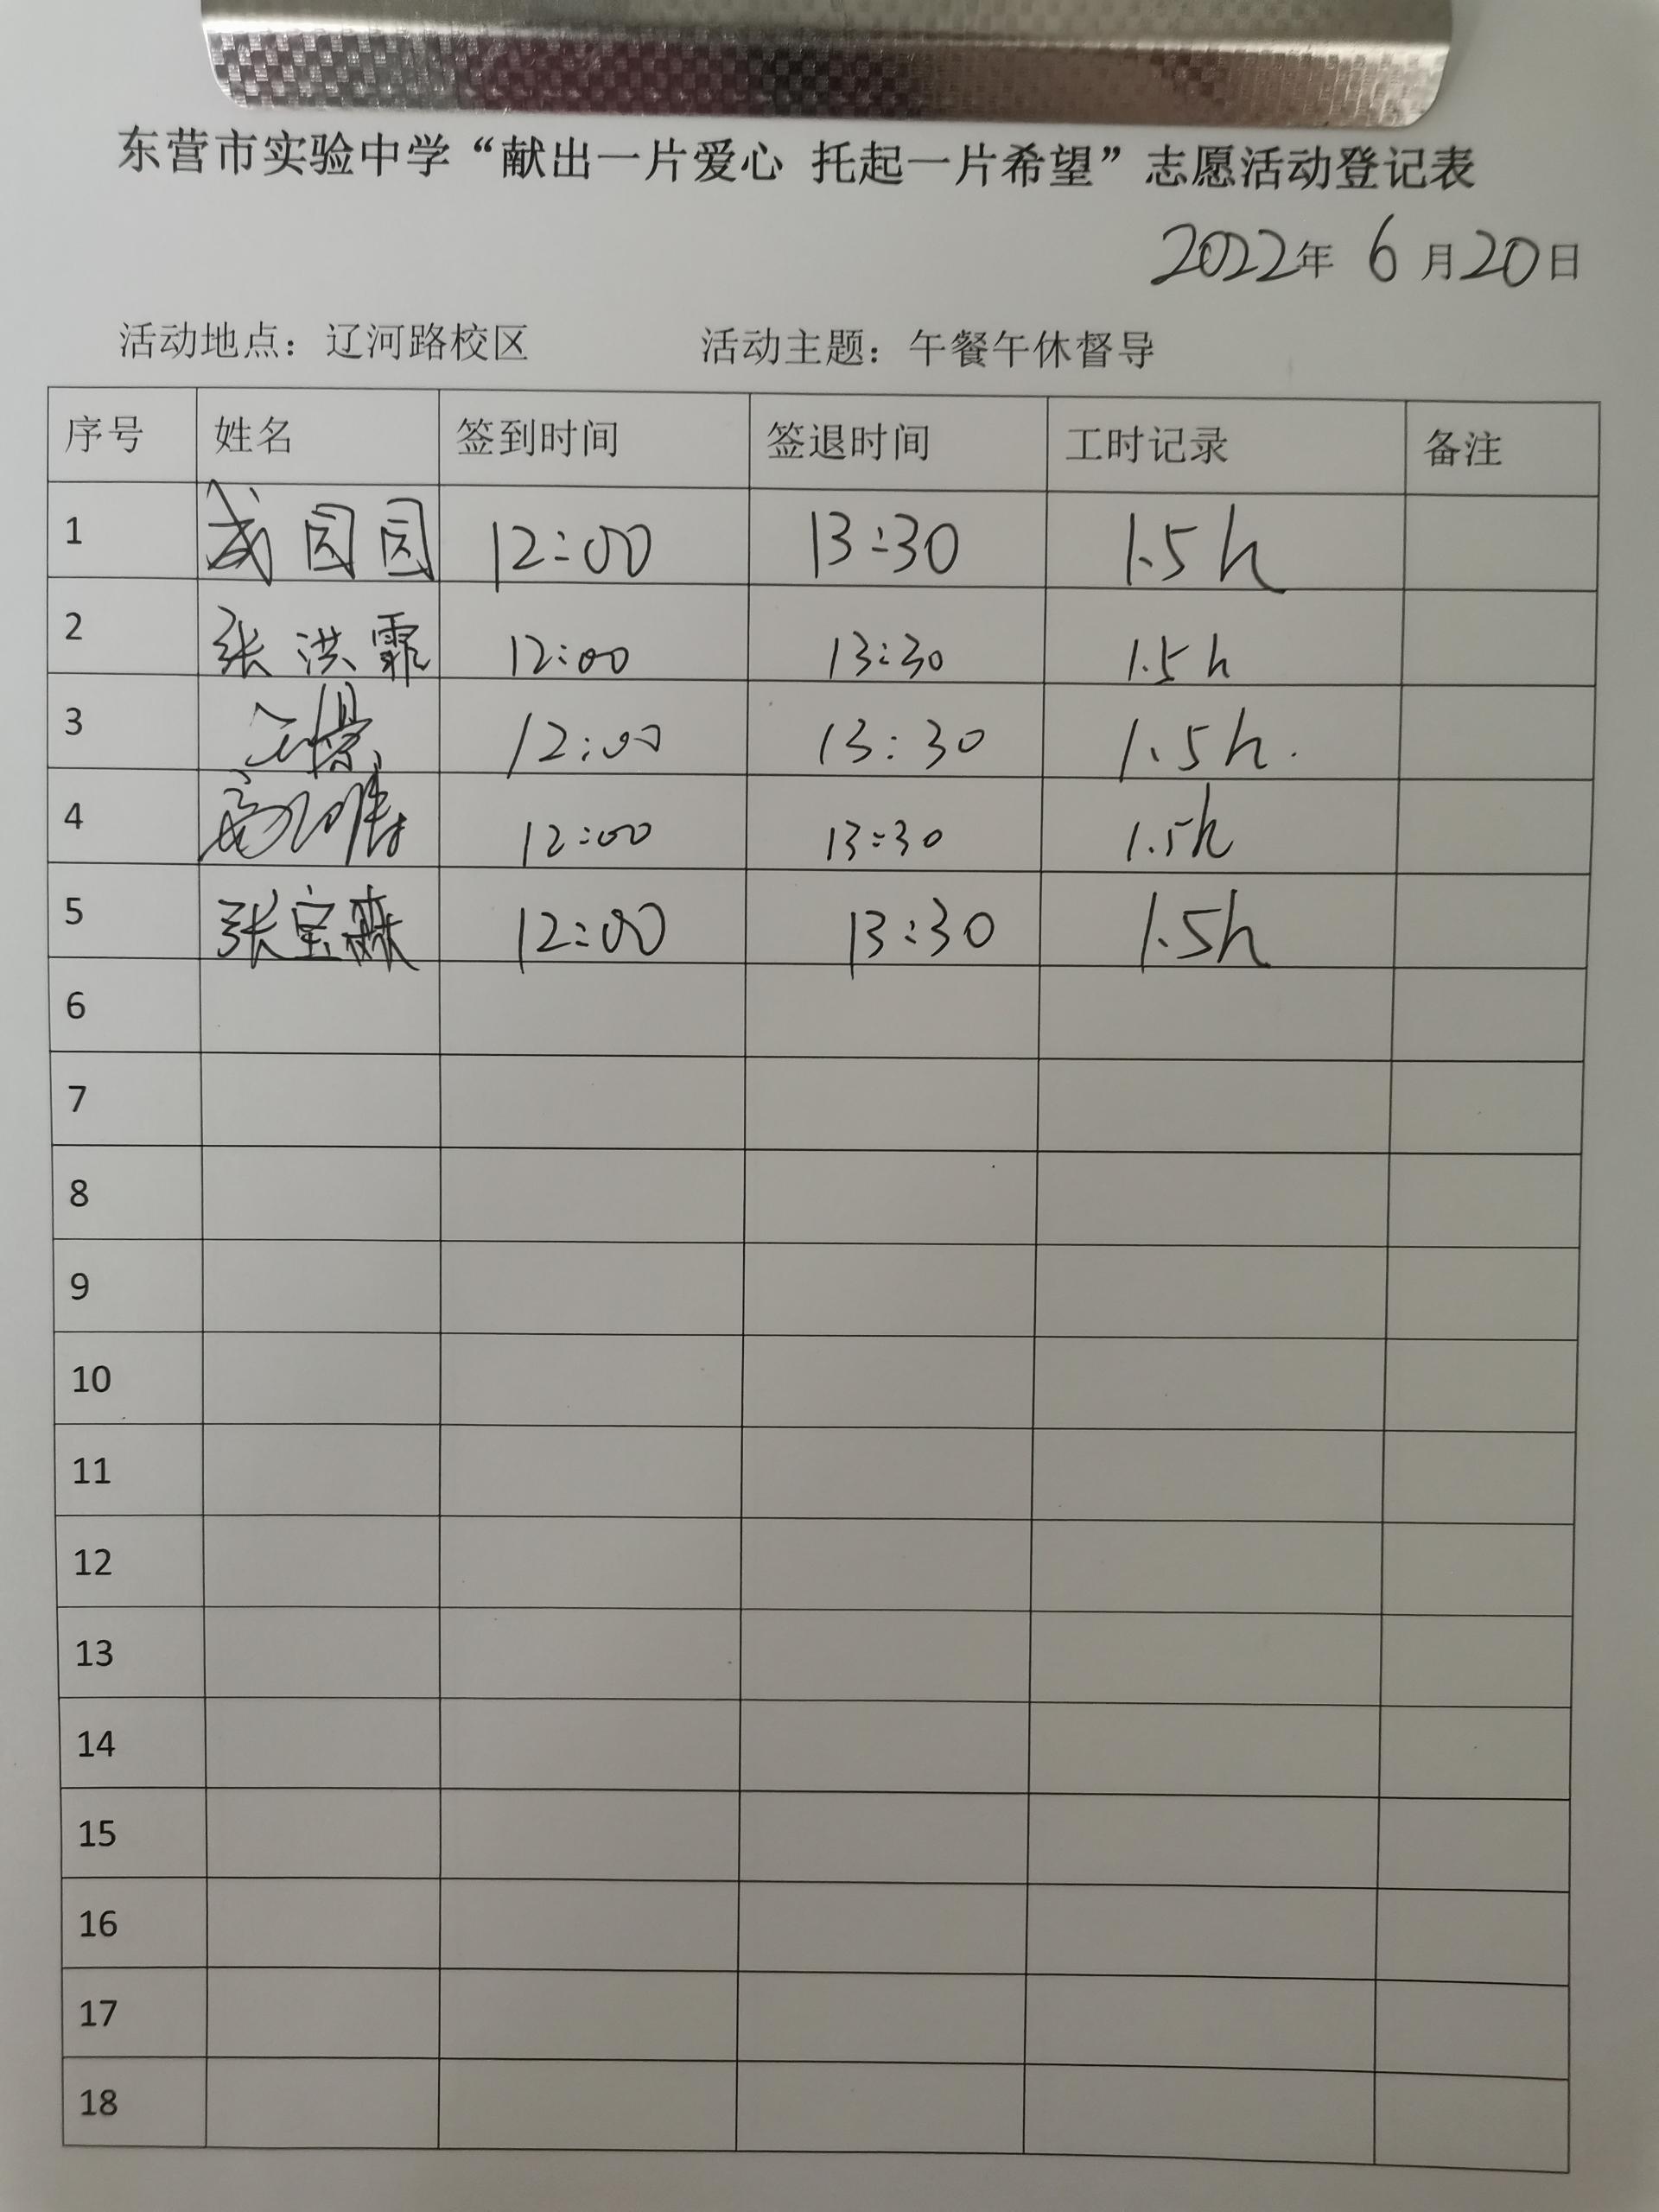 东营市实验中学“献出一片爱心 托起一片希望”志愿活动登记表
2022年 6月20日
活动地点：辽河路校区 活动主题：午餐午休督导
序号 姓名 签到时间 签退时间 工时记录 备注
1 园园 12:00 13:30 1.5h
2 张洪霏 12:00 13:30 1.5h
3 12:00 13:30 1.5h.
4 12:00 13:30 1.5h
5 张宝森 12:00 13:30 1.5h
6
7
8
9
10
11
12
13
14
15
16
17
18